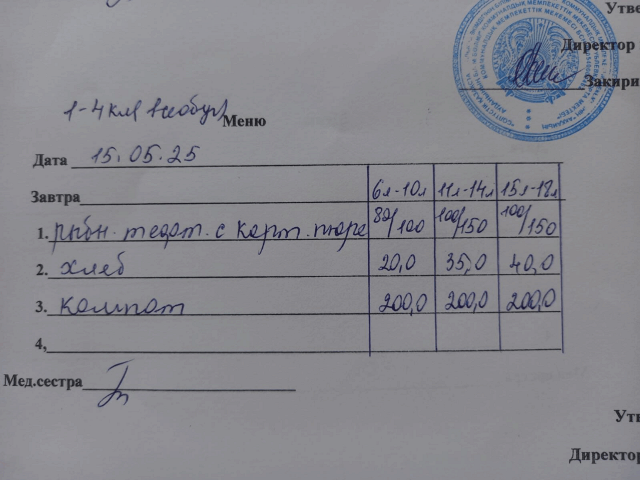 Утве
Директор
Закири
1-4 кл (всеобуч)
Меню
Дата 15.05.25
Завтра 6л-10л 11л-14л 15л-18л
1. рыбн. тефт. с карт. пюре 80/100 100/150 100/150
2. хлеб 20,0 35,0 40,0
3. компот 200,0 200,0 200,0
4,
Мед.сестра
Утв
Директор